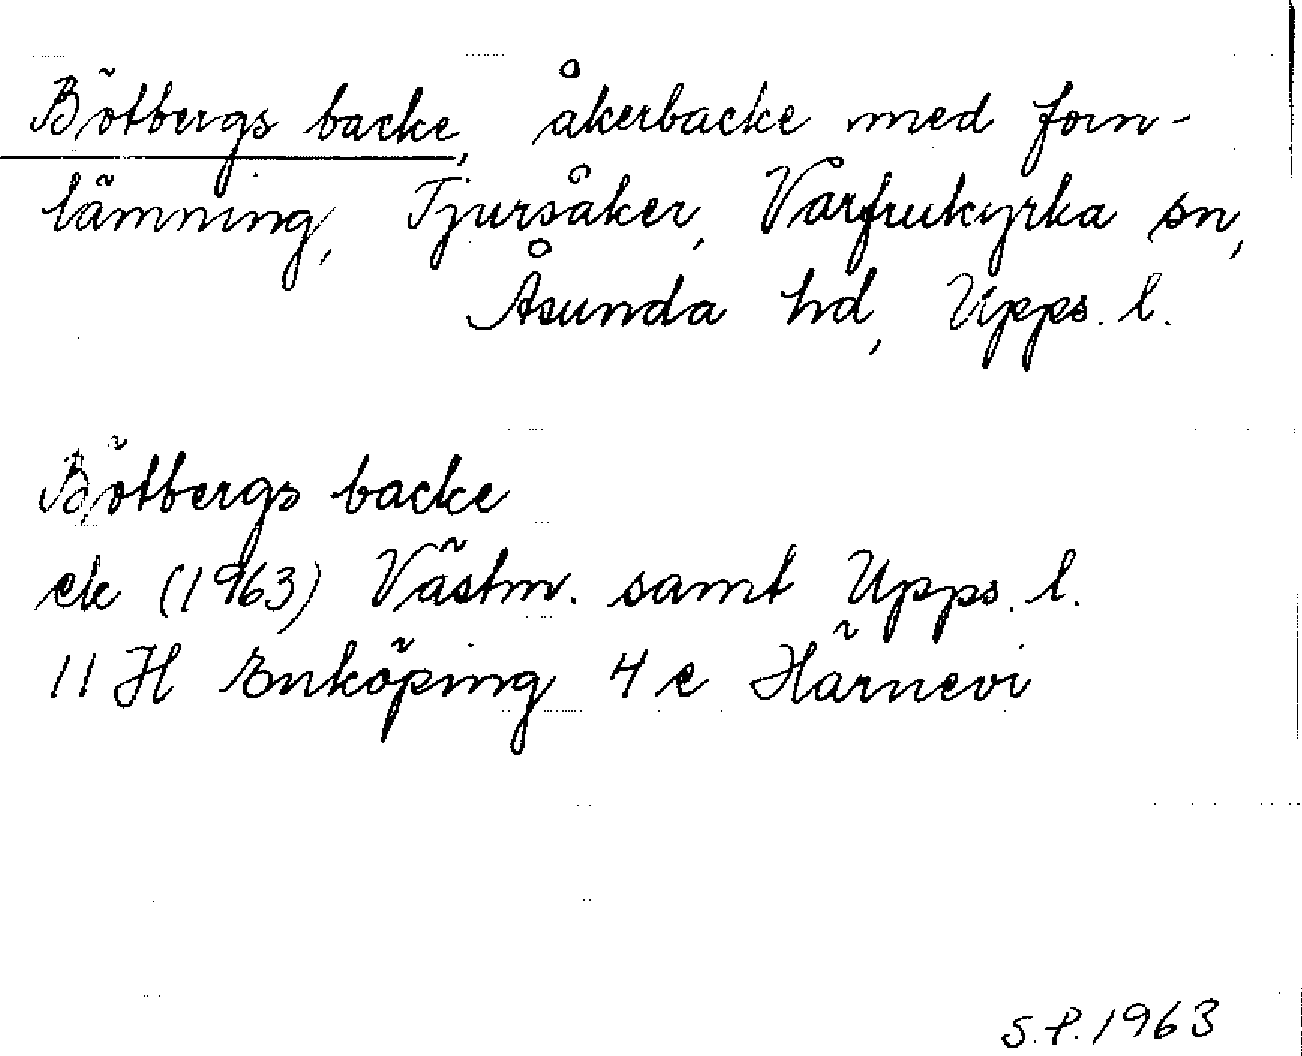 Bötbergs backe, åkerbacke med forn-
lämning, Tjursåker, Vårfrukyrka sn,
Åsunda hd, Upps. l.
Bötbergs backe
ek (1963) Västm. samt Upps. l.
11 H Enköping 4 e Härnevi
S.P. 1963